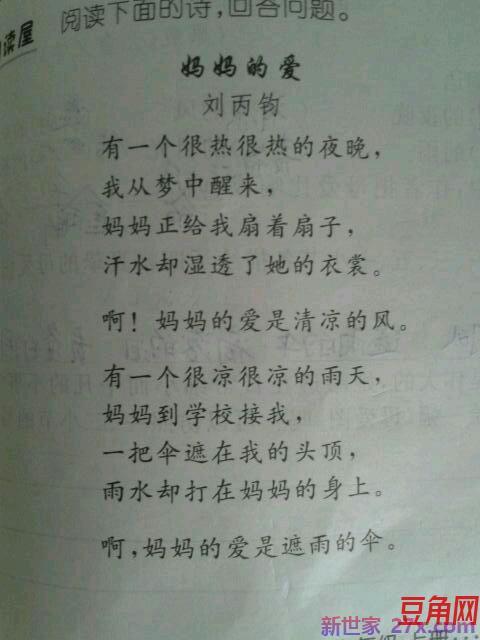 读屋
阅读下面的诗,回答问题。
妈妈的爱
刘丙钧
有一个很热很热的夜晚，
我从梦中醒来，
妈妈正给我扇着扇子，
汗水却湿透了她的衣裳。
啊！妈妈的爱是清凉的风。
有一个很凉很凉的雨天，
妈妈到学校接我，
一把伞遮在我的头顶，
雨水却打在妈妈的身上。
啊,妈妈的爱是遮雨的伞。
豆角网
新世家 27x.com